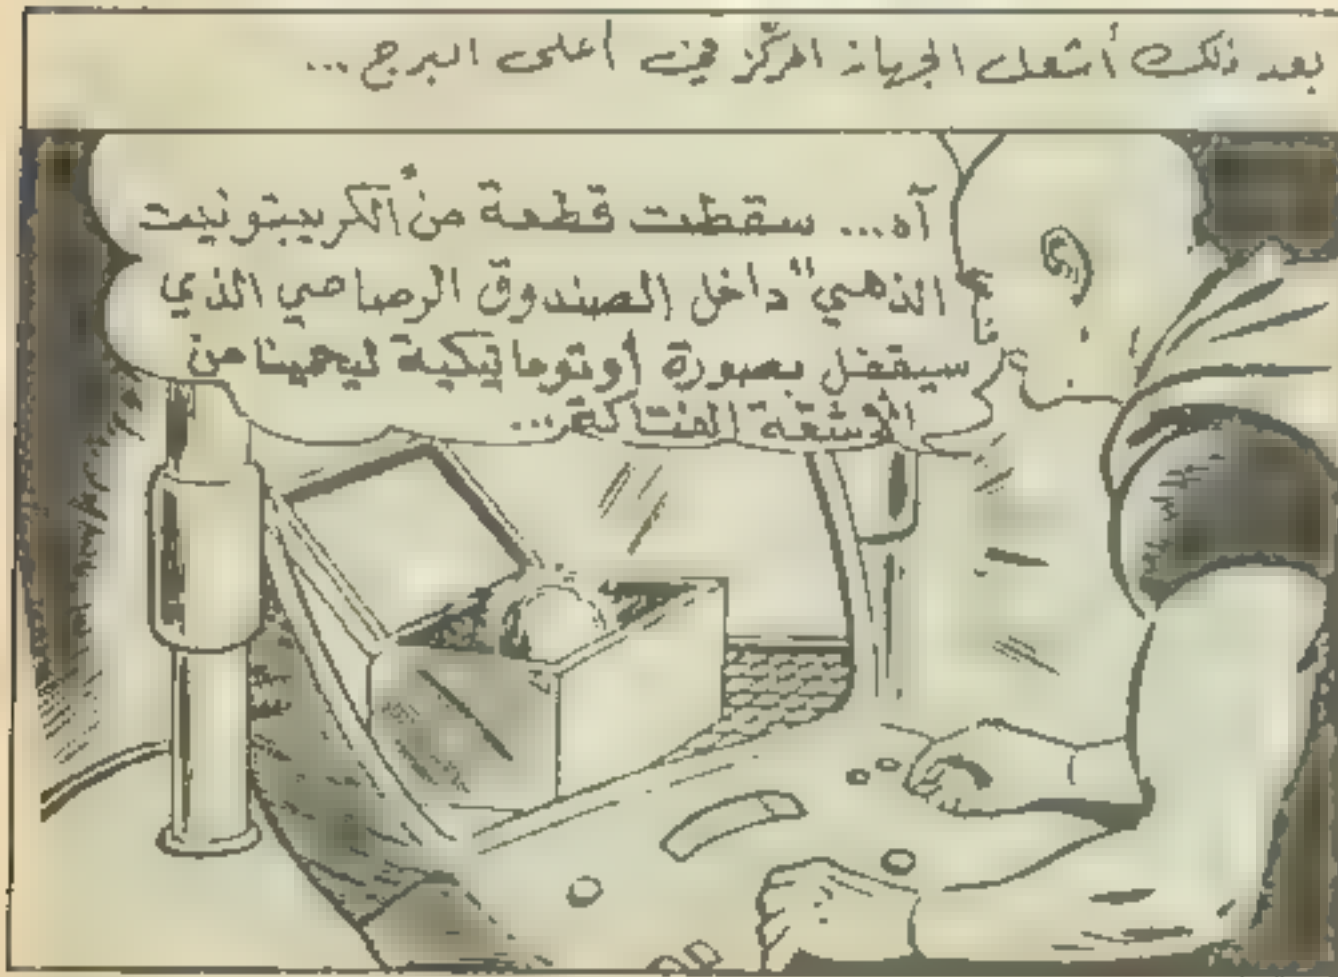 بعد ذلك أشعل الجهاز المركّز في أعلى البرج...
آه... سقطت قطعة من "الكريبتونيت
الذهبي" داخل الصندوق الرصاصي الذي
سيقفل بصورة أوتوماتيكية ليحمينا من
الأشعة الفتاكة...